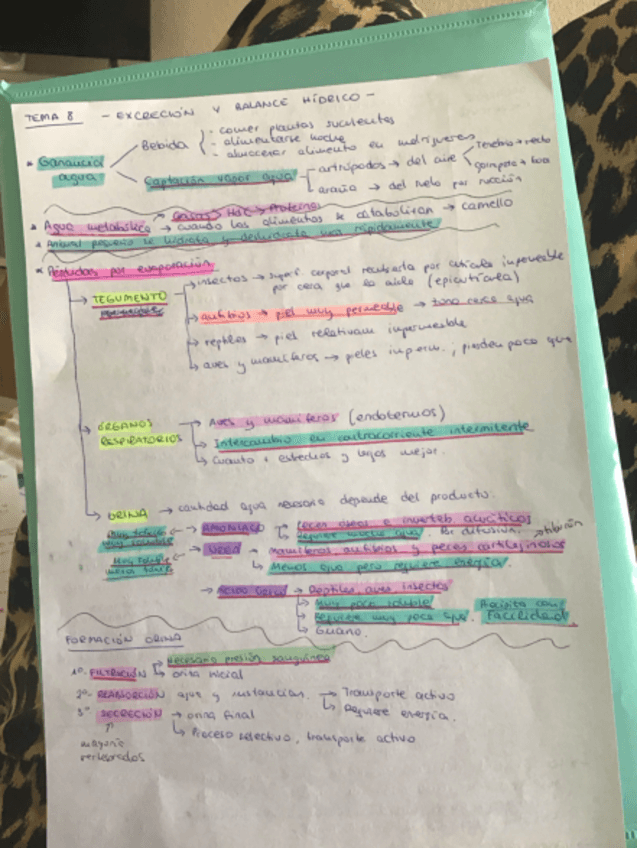 TEMA 8 - EXCRECIÓN Y BALANCE HÍDRICO -
- comer plantas suculentas
Bebida - alimentarse noche
- almacenar alimento en madrigueras
* Ganancia agua
Captación vapor agua - artrópodos → del aire
araña → del hielo por succión
* Agua metabólica → cuando los alimentos se catabolizan → camello
Grasas > HdC > Proteína
* Animal pequeño se hidrata y deshidrata más rápidamente
* Pérdidas por evaporación
TEGUMENTO
→ insectos → superf. corporal recubierta por cutícula impermeable
por cera que lo aísla (epicutícula)
→ anfibios → piel muy permeable → zona cerca agua
→ reptiles → piel relativam impermeable
→ aves y mamíferos → pieles imperm. ; pierden poco agua
ÓRGANOS RESPIRATORIOS
→ Aves y mamíferos (endotermos)
→ Intercambio en contracorriente intermitente
→ Cuanto + estrechos y largos mejor.
ORINA → cantidad agua necesaria depende del producto.
Muy tóxico muy soluble ← AMONIACO → peces óseos e inverteb acuáticos
Requiere mucha agua. Por difusión.
tiburón
menos tóxica ← UREA → mamíferos anfibios y peces cartilaginosos
Menos agua pero requiere energía.
→ ÁCIDO ÚRICO → Reptiles aves insectos
→ Muy poco soluble Precipita con facilidad
→ Requiere muy poca agua.
→ Guano.
FORMACIÓN ORINA
→ Necesaria presión sanguínea
1º- FILTRACIÓN → orina inicial
2º- REABSORCIÓN agua y sustancias. → Transporte activo
→ Requiere energía.
3º SECRECIÓN → orina final
→ Proceso selectivo, transporte activo
↑
mayoría
vertebrados